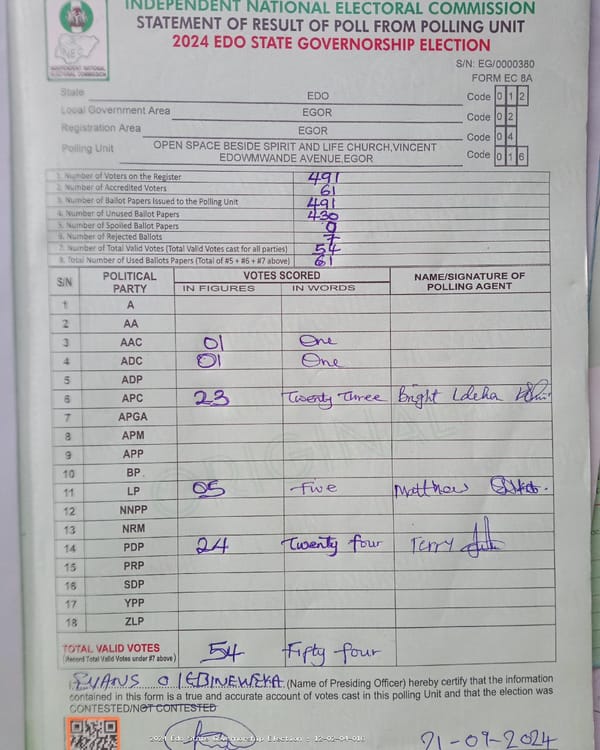 INDEPENDENT NATIONAL ELECTORAL COMMISSION
STATEMENT OF RESULT OF POLL FROM POLLING UNIT
2024 EDO STATE GOVERNORSHIP ELECTION
S/N: EG/0000380
FORM EC 8A
State EDO Code 0 1 2
Local Government Area EGOR Code 0 2
Registration Area EGOR Code 0 4
Polling Unit OPEN SPACE BESIDE SPIRIT AND LIFE CHURCH,VINCENT EDOWMWANDE AVENUE,EGOR Code 0 1 6
1. Number of Voters on the Register 491
2. Number of Accredited Voters 61
3. Number of Ballot Papers Issued to the Polling Unit 491
4. Number of Unused Ballot Papers 430
5. Number of Spoiled Ballot Papers 0
6. Number of Rejected Ballots 7
7. Number of Total Valid Votes (Total Valid Votes cast for all parties) 54
8. Total Number of Used Ballots Papers (Total of #5 + #6 + #7 above) 61
S/N POLITICAL PARTY VOTES SCORED NAME/SIGNATURE OF POLLING AGENT
IN FIGURES IN WORDS
1 A
2 AA
3 AAC 01 One
4 ADC 01 One
5 ADP
6 APC 23 Twenty Three Bright
7 APGA
8 APM
9 APP
10 BP
11 LP 05 Five Matthew
12 NNPP
13 NRM
14 PDP 24 Twenty four Terry
15 PRP
16 SDP
17 YPP
18 ZLP
TOTAL VALID VOTES 54 Fifty four
(Record Total Valid Votes under #7 above)
I, EVANS (Name of Presiding Officer) hereby certify that the information
contained in this form is a true and accurate account of votes cast in this polling Unit and that the election was
CONTESTED/NOT CONTESTED
2024 Edo State Governorship Election - 12-02-04-016
21-09-2024